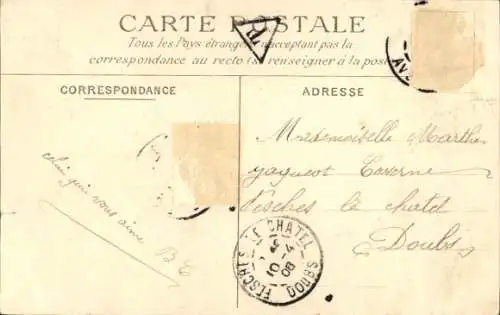 CARTE POSTALE
Tous les Pays étrangers n'acceptant pas la
correspondance au recto (se renseigner à la poste
CORRESPONDANCE
ADRESSE
celui qui vous aime
B C
Mademoiselle Marthe
Jaquot Caverne
Fesches le chatel
Doubs
FESCHES-LE CHATEL
10 -4
08
DOUBS
AV